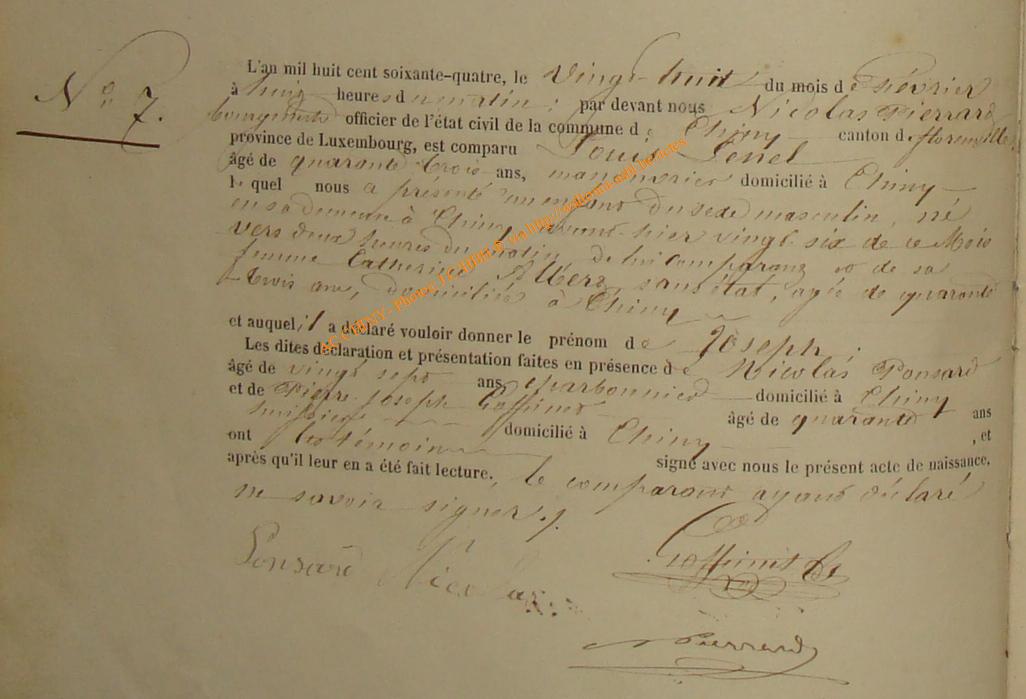 N° 7.
L'an mil huit cent soixante-quatre, le vingt-huit du mois de février
à huit heures du matin : par devant nous Nicolas Pierrard
bourgmestre officier de l'état civil de la commune de Chiny canton de florenville,
province de Luxembourg, est comparu Louis
âgé de quarante trois ans, manouvrier domicilié à Chiny
lequel nous a présenté un enfant du sexe masculin, né
en sa demeure à Chiny avant-hier vingt-six de ce Mois
vers deux heures du matin de lui comparant et de sa
femme Catherine sans état, agée de quarante
-trois ans, domiciliée à Chiny
et auquel il a déclaré vouloir donner le prénom de Joseph.
Les dites déclaration et présentation faites en présence de Nicolas Ponsard
âgé de vingt sept ans, charbonnier domicilié à Chiny
et de Pierre Joseph Goffinet âgé de quarante ans
domicilié à Chiny , et
ont les témoins signé avec nous le présent acte de naissance,
après qu'il leur en a été fait lecture, le comparant ayant déclaré
ne savoir signer.
Ponsard Nicolas
Goffinet
Pierrard
AC CHINY - Photos
via http://